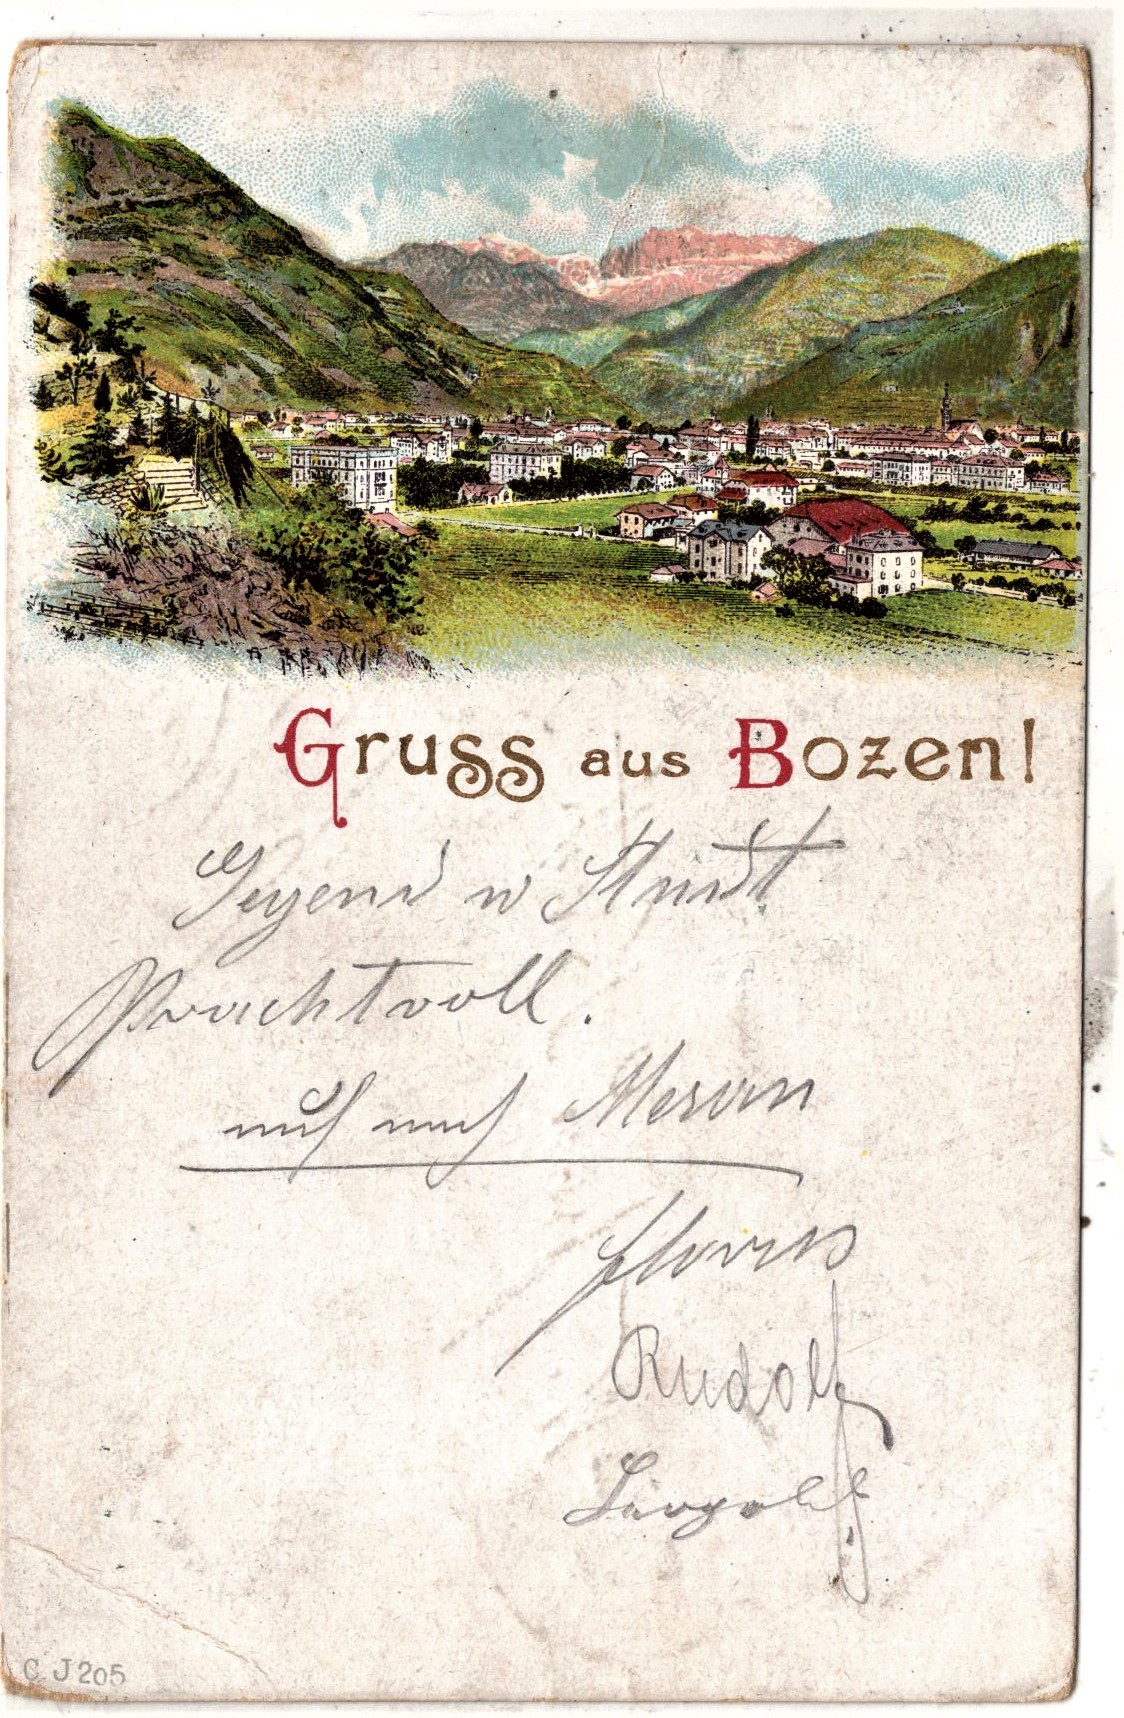 Gruss aus Bozen!
Gegend u Stadt
Prachtvoll.
auf nach Meran
Rudolf
Leopold
C J 205